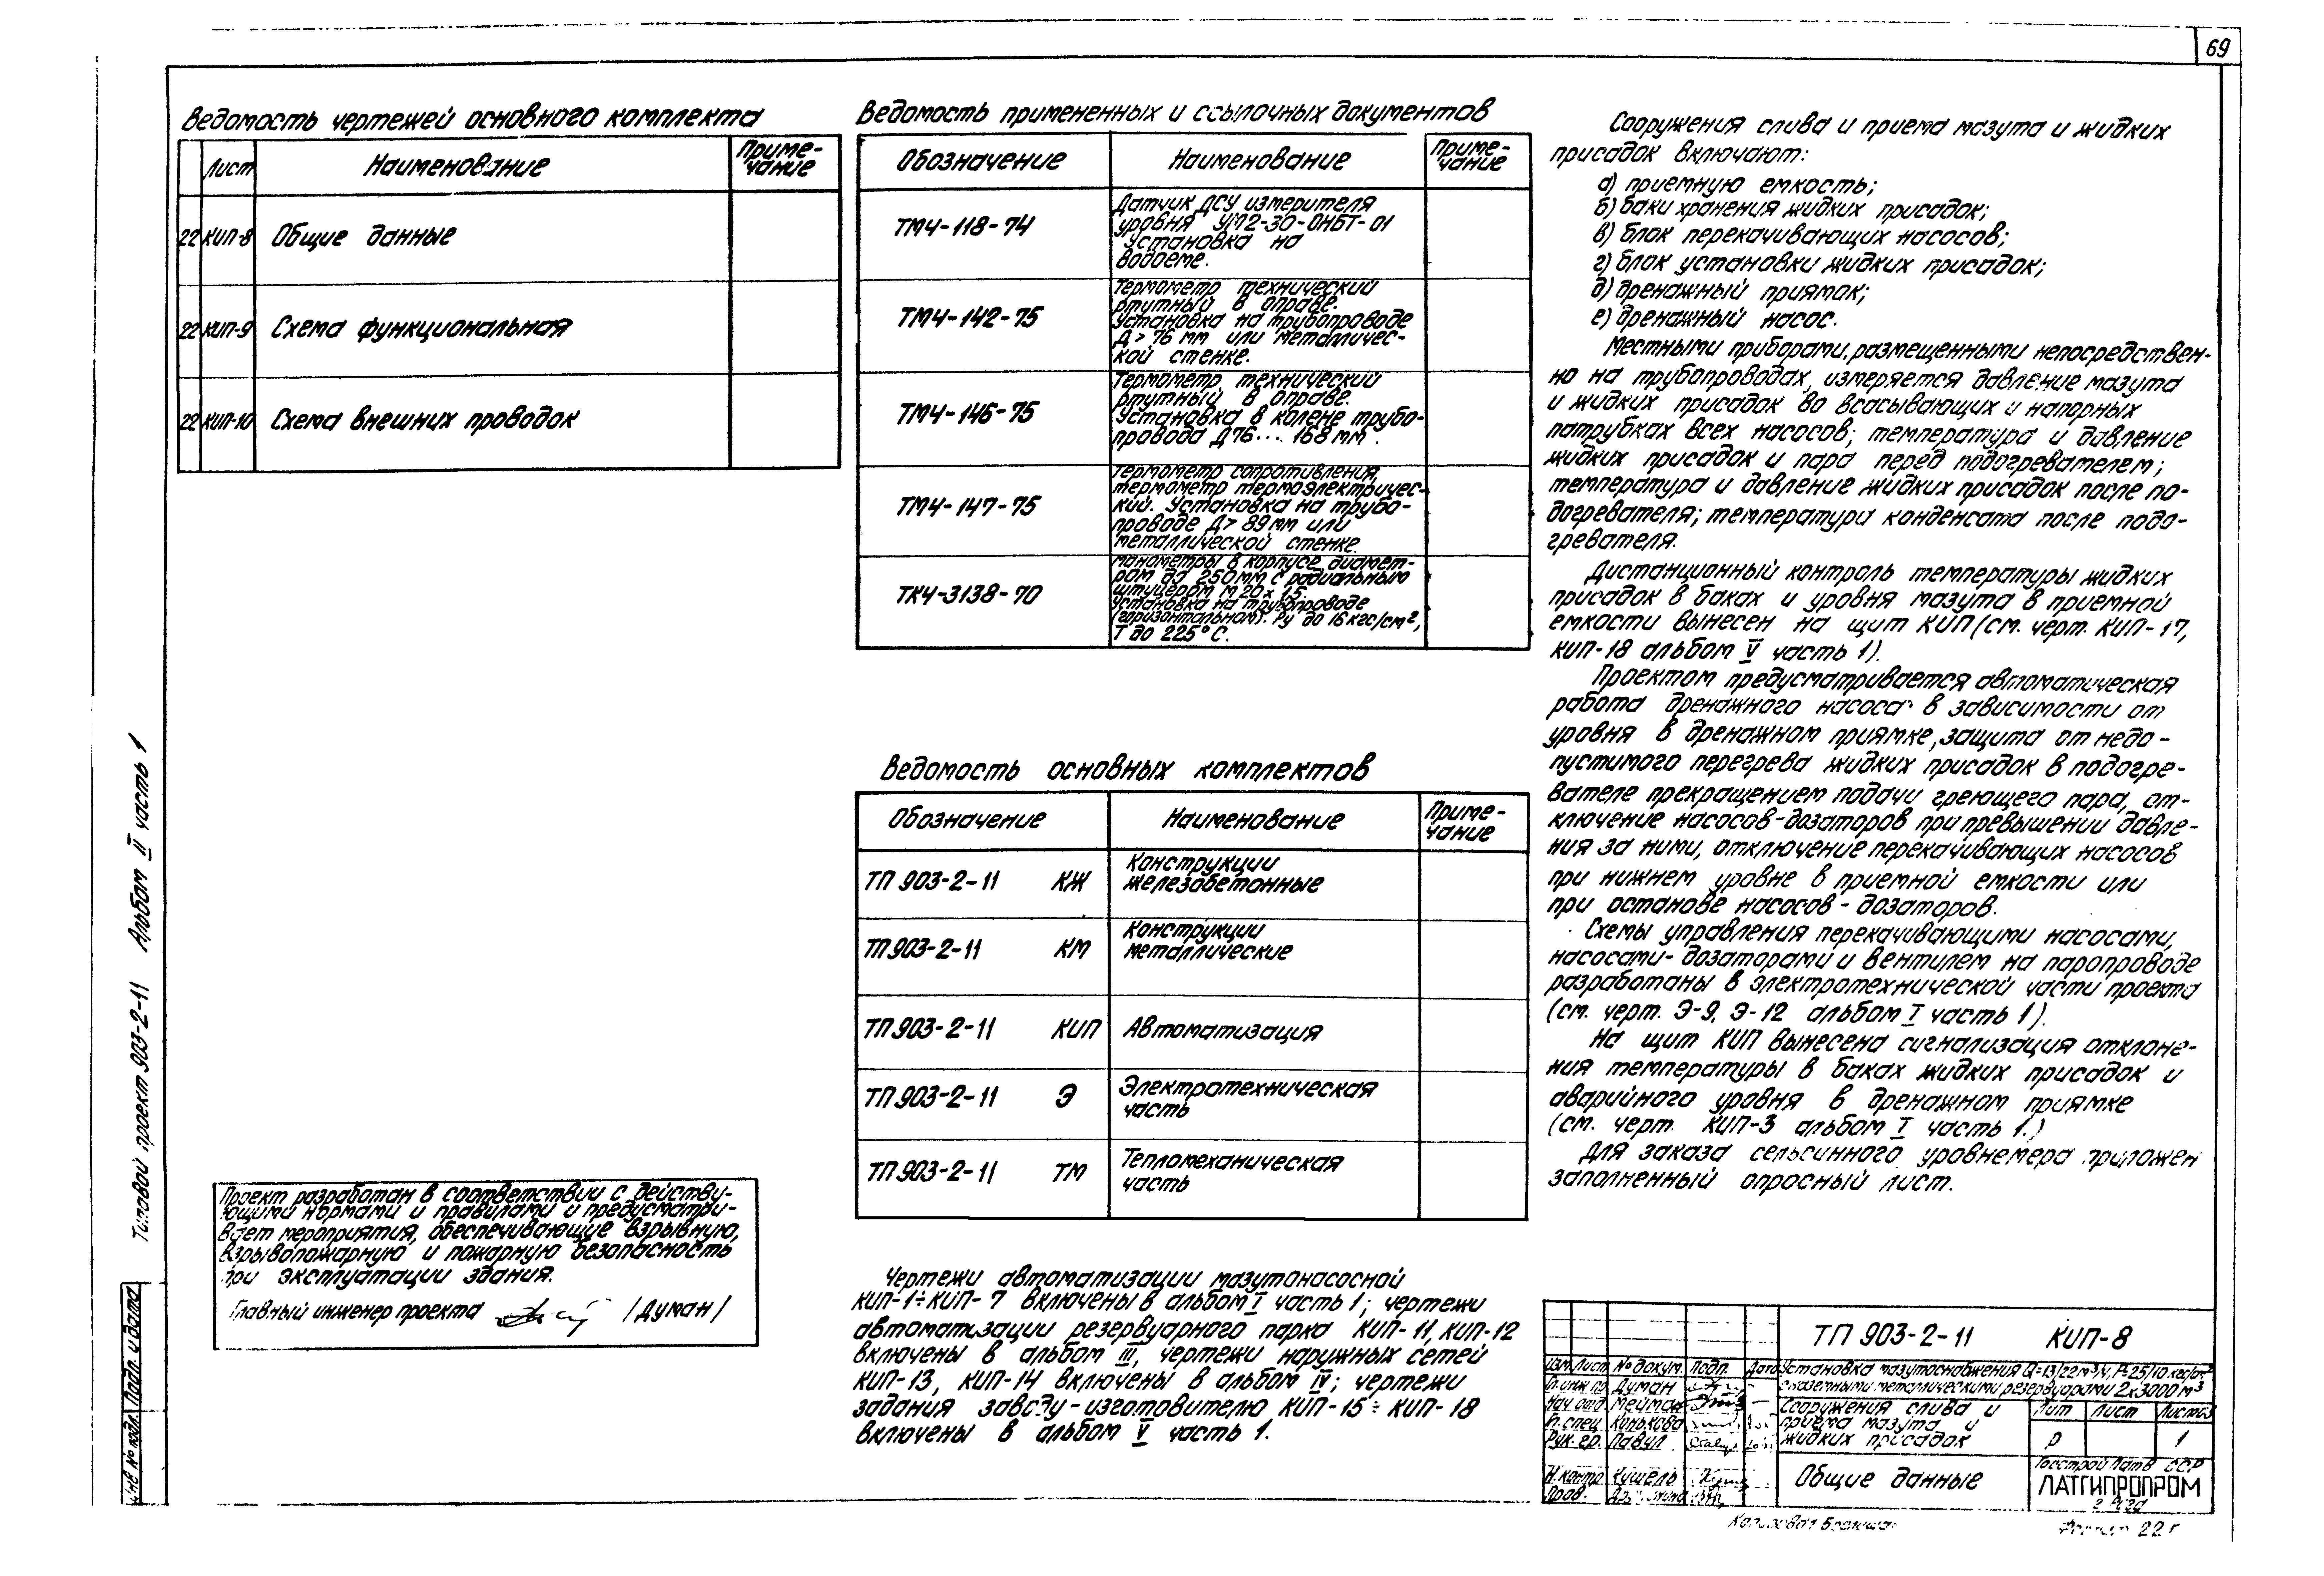 69
Ведомость чертежей основного комплекта
Лист Наименование Приме-
чание
22 КИП-8 Общие данные
22 КИП-9 Схема функциональная
22 КИП-10 Схема внешних проводок
Проект разработан в соответствии с действу-
ющими нормами и правилами и предусматри-
вает мероприятия, обеспечивающие взрывную,
взрывопожарную и пожарную безопасность
при эксплуатации здания.
Главный инженер проекта /Думан/
Типовой проект 903-2-11 Альбом II часть 1
Инв № подл. Подп. и дата
Ведомость примененных и ссылочных документов
Обозначение Наименование Приме-
чание
ТМ4-118-74
Датчик ДСУ измерителя
уровня УМ2-30-ОНБТ-01
Установка на
водоеме.
ТМ4-142-75
Термометр технический
ртутный в оправе.
Установка на трубопроводе
Д>76 мм или металличес-
кой стенке.
ТМ4-146-75
Термометр технический
ртутный в оправе.
Установка в колене трубо-
провода Д76... 168 мм.
ТМ4-147-75
Термометр сопротивления,
термометр термоэлектричес-
кий. Установка на трубо-
проводе Д>89 мм или
металлической стенке.
ТК4-3138-70
манометры в корпусе диамет-
ром до 250 мм с радиальным
штуцером М 20х1,5.
Установка на трубопроводе
(горизонтальном). Ру до 16 кгс/см²,
Т до 225°С.
Ведомость основных комплектов
Обозначение Наименование Приме-
чание
ТП 903-2-11 КЖ Конструкции
железобетонные
ТП 903-2-11 КМ Конструкции
металлические
ТП 903-2-11 КИП Автоматизация
ТП 903-2-11 Э Электротехническая
часть
ТП 903-2-11 ТМ Тепломеханическая
часть
Чертежи автоматизации мазутонасосной
КИП-1÷КИП-7 включены в альбом I часть 1; чертежи
автоматизации резервуарного парка КИП-11, КИП-12
включены в альбом III, чертежи наружных сетей
КИП-13, КИП-14 включены в альбом IV; чертежи
задания заводу-изготовителю КИП-15÷КИП-18
включены в альбом V часть 1.
Сооружения слива и приема мазута и жидких
присадок включают:
а) приемную емкость;
б) баки хранения жидких присадок;
в) блок перекачивающих насосов;
г) блок установки жидких присадок;
д) дренажный приямок;
е) дренажный насос.
Местными приборами, размещенными непосредствен-
но на трубопроводах, измеряется давление мазута
и жидких присадок во всасывающих и напорных
патрубках всех насосов; температура и давление
жидких присадок и пара перед подогревателем;
температура и давление жидких присадок после по-
догревателя; температура конденсата после подо-
гревателя.
Дистанционный контроль температуры жидких
присадок в баках и уровня мазута в приемной
емкости вынесен на щит КИП (см. черт. КИП-17,
КИП-18 альбом V часть 1).
Проектом предусматривается автоматическая
работа дренажного насоса в зависимости от
уровня в дренажном приямке, защита от недо-
пустимого перегрева жидких присадок в подогре-
вателе прекращением подачи греющего пара, от-
ключение насосов-дозаторов при превышении давле-
ния за ними, отключение перекачивающих насосов
при нижнем уровне в приемной емкости или
при останове насосов-дозаторов.
Схемы управления перекачивающими насосами,
насосами-дозаторами и вентилем на паропроводе
разработаны в электротехнической части проекта
(см. черт. Э-9, Э-12 альбом I часть 1).
На щит КИП вынесена сигнализация отклоне-
ния температуры в баках жидких присадок и
аварийного уровня в дренажном приямке
(см. черт. КИП-3 альбом I часть 1.)
Для заказа сельсинного уровнемера приложен
заполненный опросный лист.
ТП 903-2-11 КИП-8
Изм. Лист № докум. Подп. Дата
Установка мазутоснабжения Q=13/22 м³/ч, Р=25/10 кгс/см²
с наземными металлическими резервуарами 2х3000 м³
Гл. инж. пр. Думан
Нач. отд. Мейман
Гл. спец. Конькова
Рук. гр. Павул
Н. контр. Кушель
Пров.
Сооружения слива и
приема мазута и
жидких присадок
Лит Лист Листов
Р 1
Общие данные
Госстрой Латв. ССР
ЛАТГИПРОПРОМ
г. Рига
Копировал
Формат 22 г